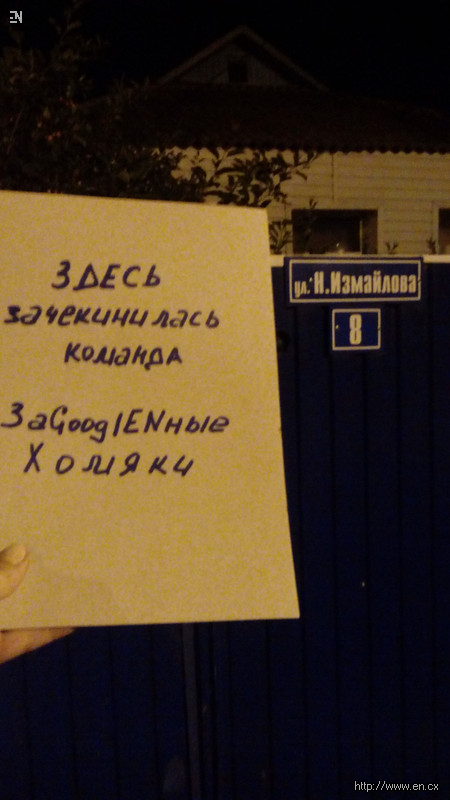 EN
ул. Н.Измайлова
8
ЗДЕСЬ
зачекинилась
команда
ЗаGooglENные
Хомяки
http://www.en.cx